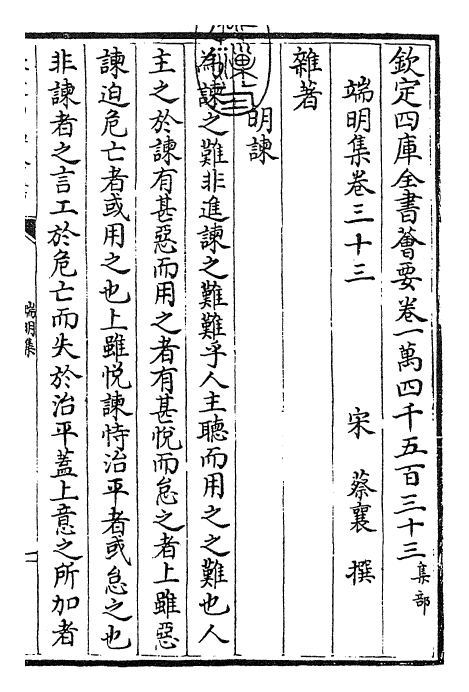 欽定四庫全書薈要卷一萬四千五百三十三集部
端明集卷三十三 宋 蔡襄 撰
雜著
明諫
為諫之難非進諫之難難乎人主聽而用之之難也人
主之於諫有甚惡而用之者有甚悅而怠之者上雖惡
諫迫危亡者或用之也上雖悅諫恃治平者或怠之也
非諫者之言工於危亡而失於治平蓋上意之所加者
端明集
一